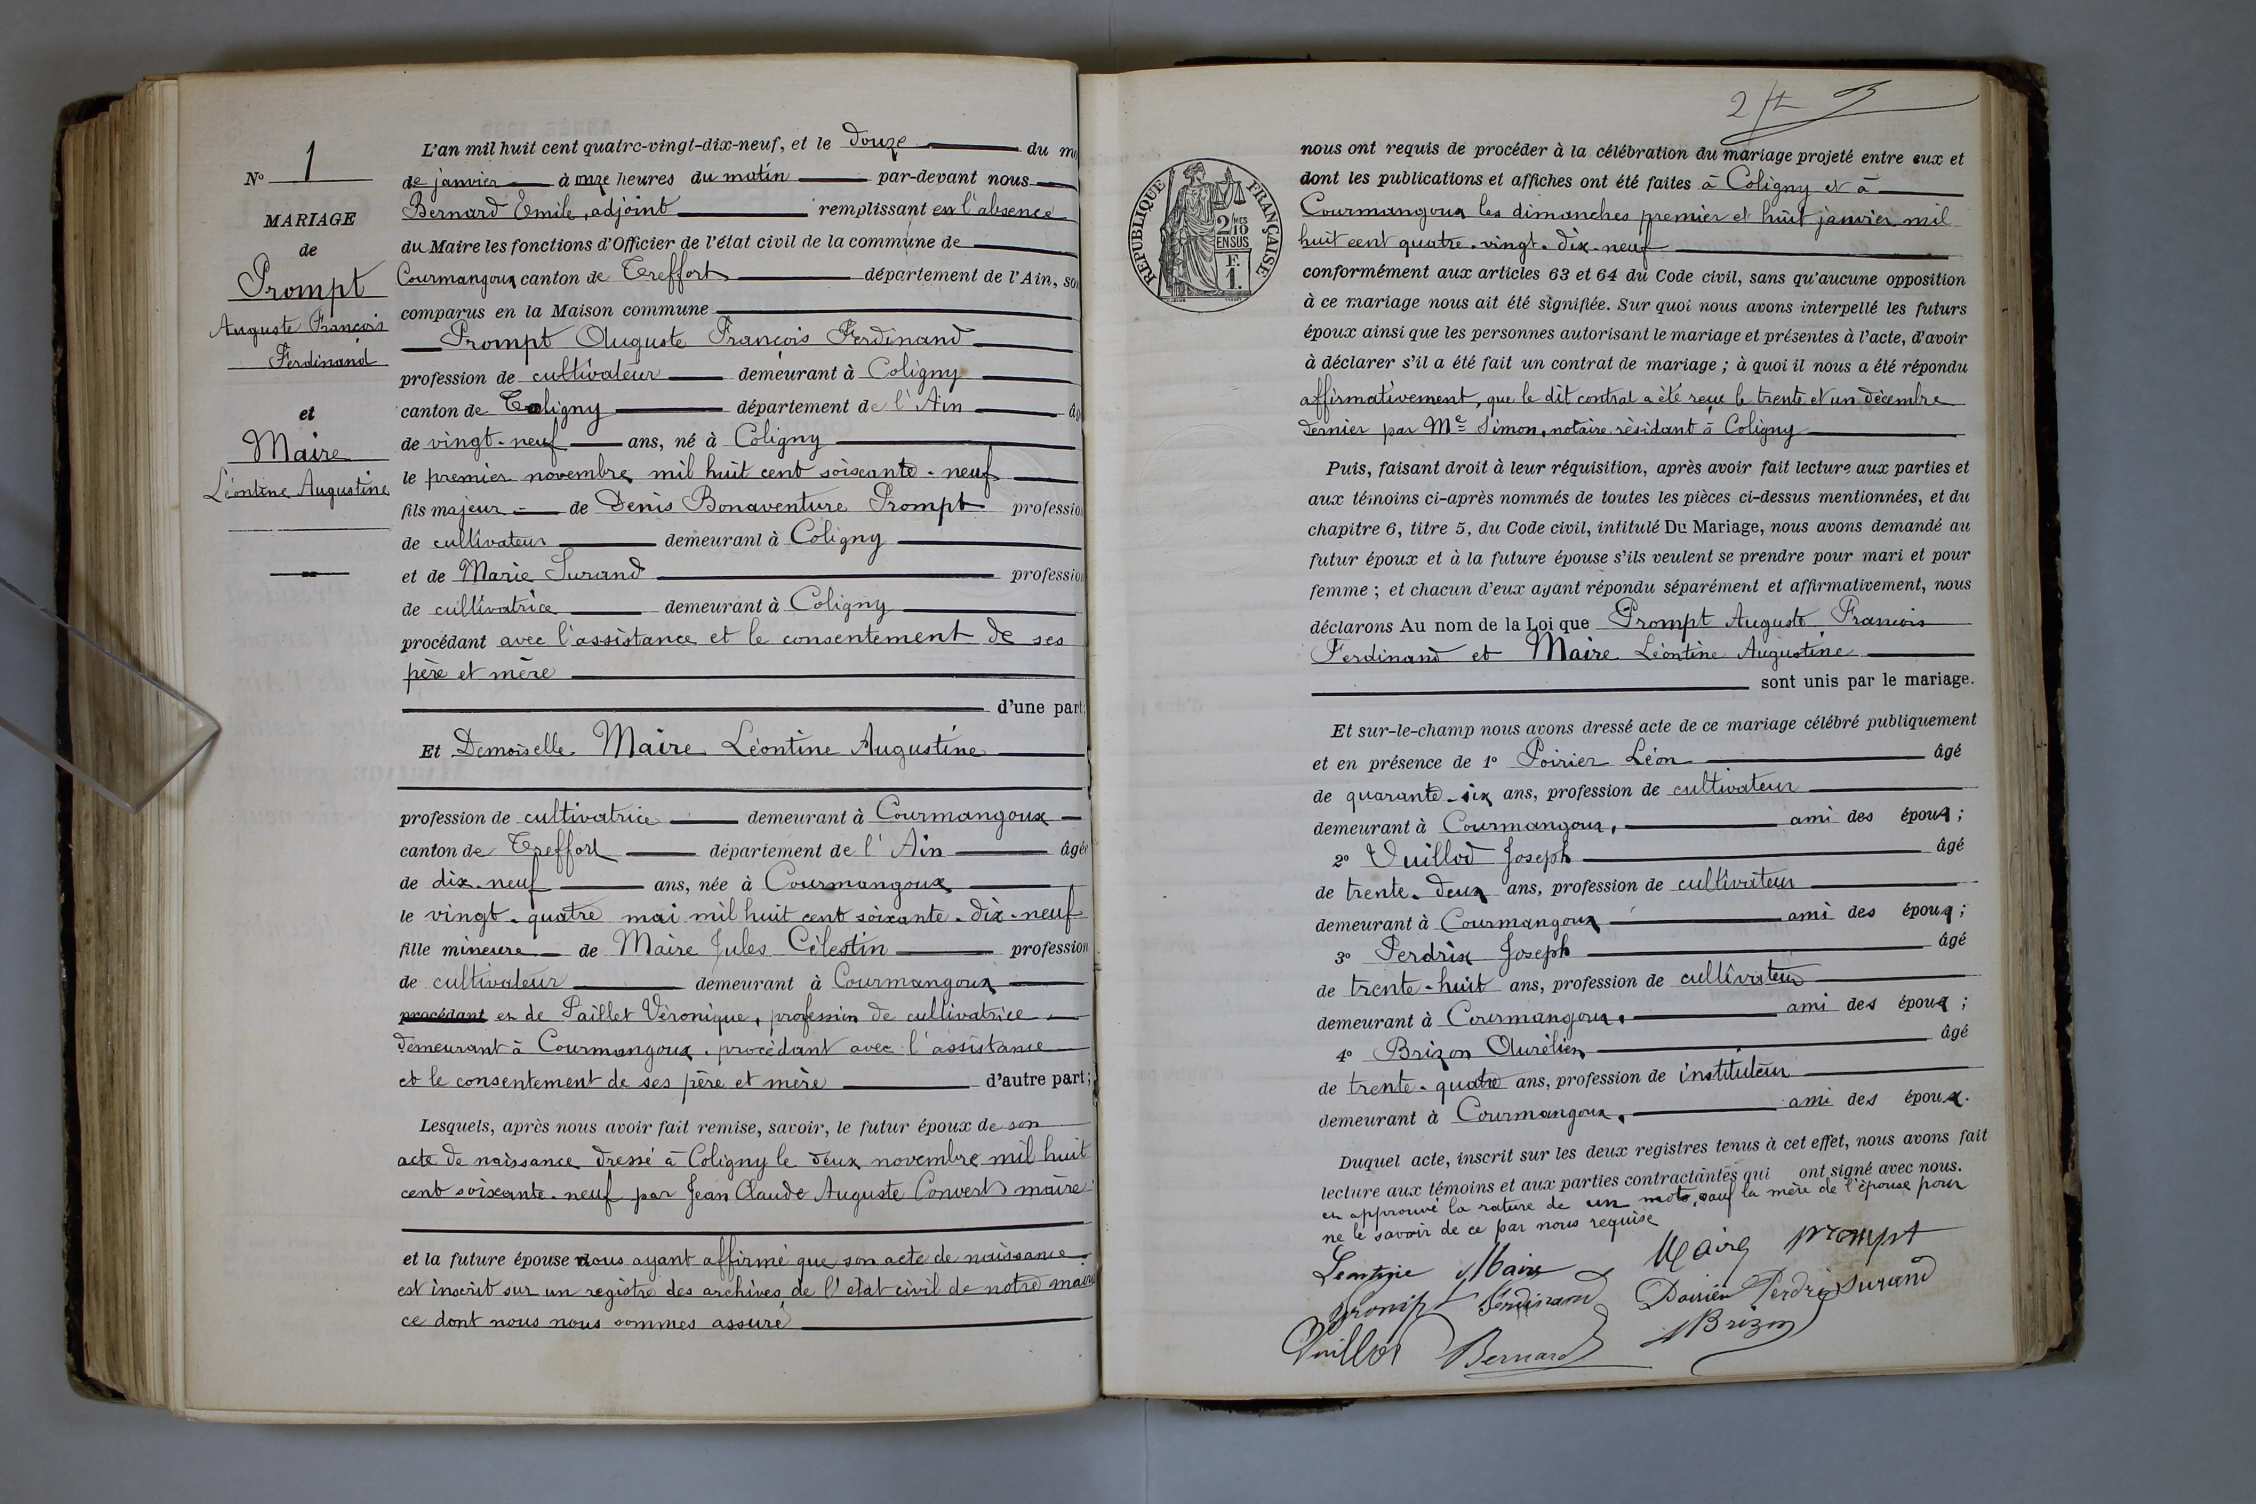 N° 1
MARIAGE
de
Prompt
Auguste François
Ferdinand
et
Maire
Léontine Augustine
L'an mil huit cent quatre-vingt-dix-neuf, et le douze du
de janvier à onze heures du matin par-devant nous
Bernard Emile, adjoint remplissant en l'absence
du Maire les fonctions d'Officier de l'état civil de la commune de
Courmangoux canton de Treffort département de l'Ain,
comparus en la Maison commune
Prompt Auguste François Ferdinand
profession de cultivateur demeurant à Coligny
canton de Coligny département de l'Ain
de vingt-neuf ans, né à Coligny
le premier novembre mil huit cent soixante-neuf
fils majeur de Denis Bonaventure Prompt profession
de cultivateur demeurant à Coligny
et de Marie Durand profession
de cultivatrice demeurant à Coligny
procédant avec l'assistance et le consentement de ses
père et mère
d'une part;
Et Demoiselle Maire Léontine Augustine
profession de cultivatrice demeurant à Courmangoux
canton de Treffort département de l'Ain âgée
de dix-neuf ans, née à Courmangoux
le vingt-quatre mai mil huit cent soixante-dix-neuf
fille mineure de Maire Jules Célestin profession
de cultivateur demeurant à Courmangoux
procédant et de Paillet Véronique, profession de cultivatrice
demeurant à Courmangoux, procédant avec l'assistance
et le consentement de ses père et mère d'autre part;
Lesquels, après nous avoir fait remise, savoir, le futur époux de son
acte de naissance dressé à Coligny le deux novembre mil huit
cent soixante-neuf par Jean Claude Auguste Convert maire
et la future épouse nous ayant affirmé que son acte de naissance
est inscrit sur un registre des archives de l'état civil de notre mairie
ce dont nous nous sommes assuré
RÉPUBLIQUE FRANÇAISE
2/10 EN SUS
F. 1.
nous ont requis de procéder à la célébration du mariage projeté entre eux et
dont les publications et affiches ont été faites à Coligny et à
Courmangoux les dimanches premier et huit janvier mil
huit cent quatre-vingt-dix-neuf
conformément aux articles 63 et 64 du Code civil, sans qu'aucune opposition
à ce mariage nous ait été signifiée. Sur quoi nous avons interpellé les futurs
époux ainsi que les personnes autorisant le mariage et présentes à l'acte, d'avoir
à déclarer s'il a été fait un contrat de mariage ; à quoi il nous a été répondu
affirmativement, que le dit contrat a été reçu le trente et un décembre
dernier par Me Simon, notaire résidant à Coligny
Puis, faisant droit à leur réquisition, après avoir fait lecture aux parties et
aux témoins ci-après nommés de toutes les pièces ci-dessus mentionnées, et du
chapitre 6, titre 5, du Code civil, intitulé Du Mariage, nous avons demandé au
futur époux et à la future épouse s'ils veulent se prendre pour mari et pour
femme ; et chacun d'eux ayant répondu séparément et affirmativement, nous
déclarons Au nom de la Loi que Prompt Auguste François
Ferdinand et Maire Léontine Augustine
sont unis par le mariage.
Et sur-le-champ nous avons dressé acte de ce mariage célébré publiquement
et en présence de 1° Poirier Léon âgé
de quarante-six ans, profession de cultivateur
demeurant à Courmangoux, ami des époux ;
2° Vuillod Joseph âgé
de trente-deux ans, profession de cultivateur
demeurant à Courmangoux ami des époux ;
3° Perdrix Joseph âgé
de trente-huit ans, profession de cultivateur
demeurant à Courmangoux, ami des époux ;
4° Brizon Aurélien âgé
de trente-quatre ans, profession de instituteur
demeurant à Courmangoux, ami des époux.
Duquel acte, inscrit sur les deux registres tenus à cet effet, nous avons fait
lecture aux témoins et aux parties contractantes qui ont signé avec nous.
en approuvé la rature de un mots, sauf la mère de l'épouse pour
ne le savoir de ce par nous requise
Leontine Maire Maire Prompt
Prompt Ferdinand Poirier Perdrix Durand
Vuillod Bernard Brizon